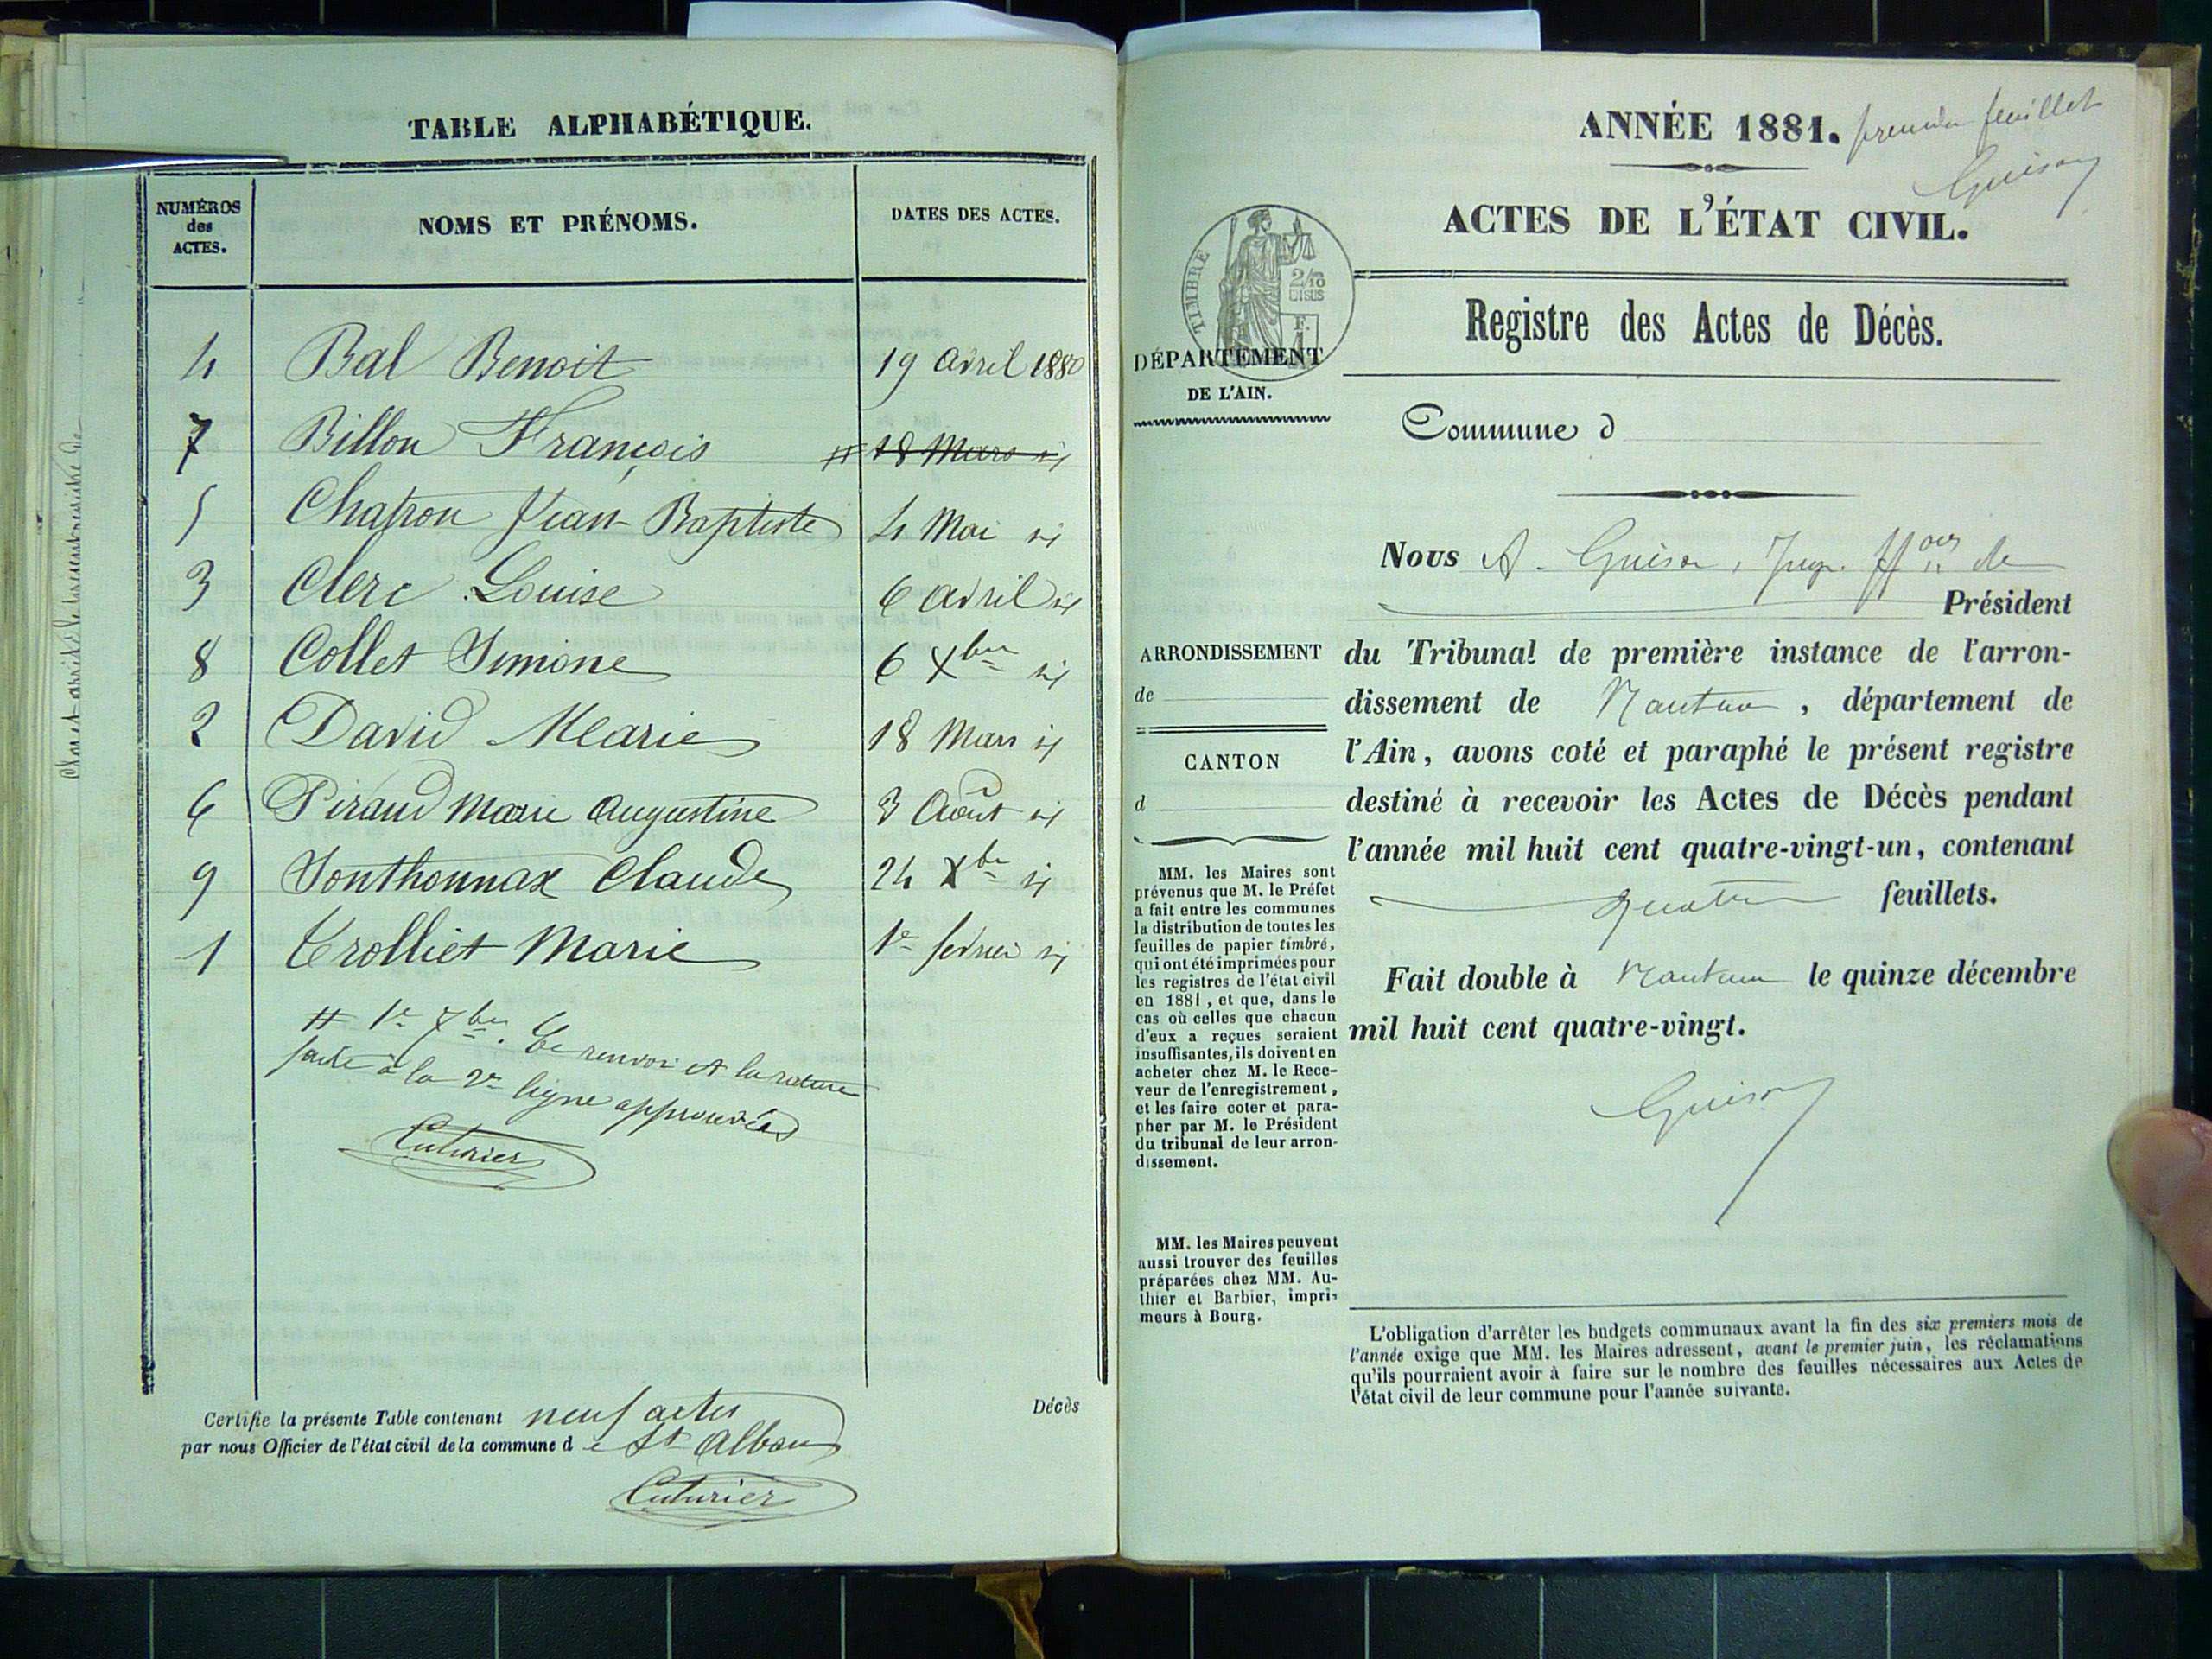 TABLE ALPHABÉTIQUE.
NUMÉROS
des
ACTES.
NOMS ET PRÉNOMS.
DATES DES ACTES.
4 Bal Benoit 19 avril 1880
7 Billon François # 18 Mars id
5 Chapon Jean-Baptiste 4 Mai id
3 Clerc Louise 6 avril id
8 Collet Simone 6 Xbre id
2 David Marie 18 Mars id
6 Piraud Marie Augustine 3 Août id
9 Sonthonnax Claude 24 Xbre id
1 Trolliet Marie 1er février id
# 1er 7bre. Ce renvoi et la rature
faite à la 2e ligne approuvés
Cuturier
Certifie la présente Table contenant neuf actes
par nous Officier de l'état civil de la commune de St Alban
Cuturier
Décès
ANNÉE 1881. premier feuillet
Guison
ACTES DE L'ÉTAT CIVIL.
TIMBRE
2/10
EN SUS
DÉPARTEMENT
DE L'AIN.
Registre des Actes de Décès.
Commune d
Nous A. Guison, Juge ffons de
Président
du Tribunal de première instance de l'arron-
dissement de Nantua, département de
l'Ain, avons coté et paraphé le présent registre
destiné à recevoir les Actes de Décès pendant
l'année mil huit cent quatre-vingt-un, contenant
quatre feuillets.
Fait double à Nantua le quinze décembre
mil huit cent quatre-vingt.
Guison
ARRONDISSEMENT
de
CANTON
d
MM. les Maires sont
prévenus que M. le Préfet
a fait entre les communes
la distribution de toutes les
feuilles de papier timbré,
qui ont été imprimées pour
les registres de l'état civil
en 1881, et que, dans le
cas où celles que chacun
d'eux a reçues seraient
insuffisantes, ils doivent en
acheter chez M. le Rece-
veur de l'enregistrement,
et les faire coter et para-
pher par M. le Président
du tribunal de leur arron-
dissement.
MM. les Maires peuvent
aussi trouver des feuilles
préparées chez MM. Au-
thier et Barbier, impri-
meurs à Bourg.
L'obligation d'arrêter les budgets communaux avant la fin des six premiers mois de
l'année exige que MM. les Maires adressent, avant le premier juin, les réclamations
qu'ils pourraient avoir à faire sur le nombre des feuilles nécessaires aux Actes de
l'état civil de leur commune pour l'année suivante.